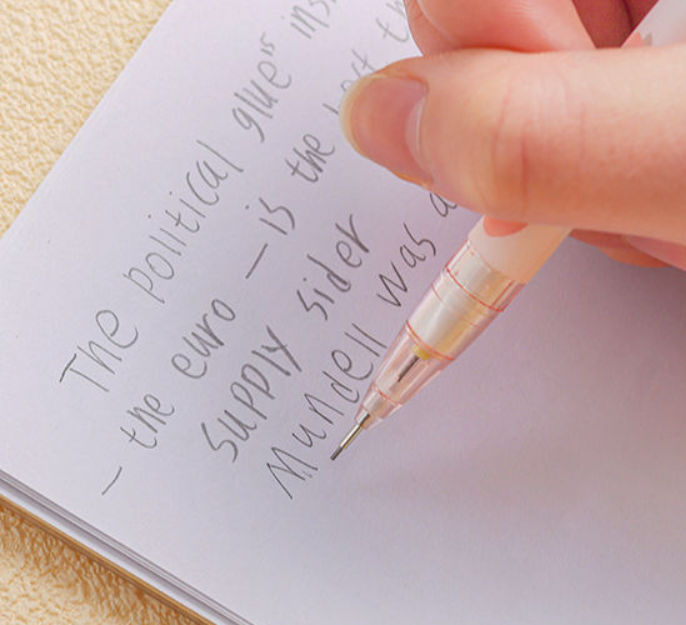 The political glue" ins
- the euro - is the
Supply sider
Mundell was a